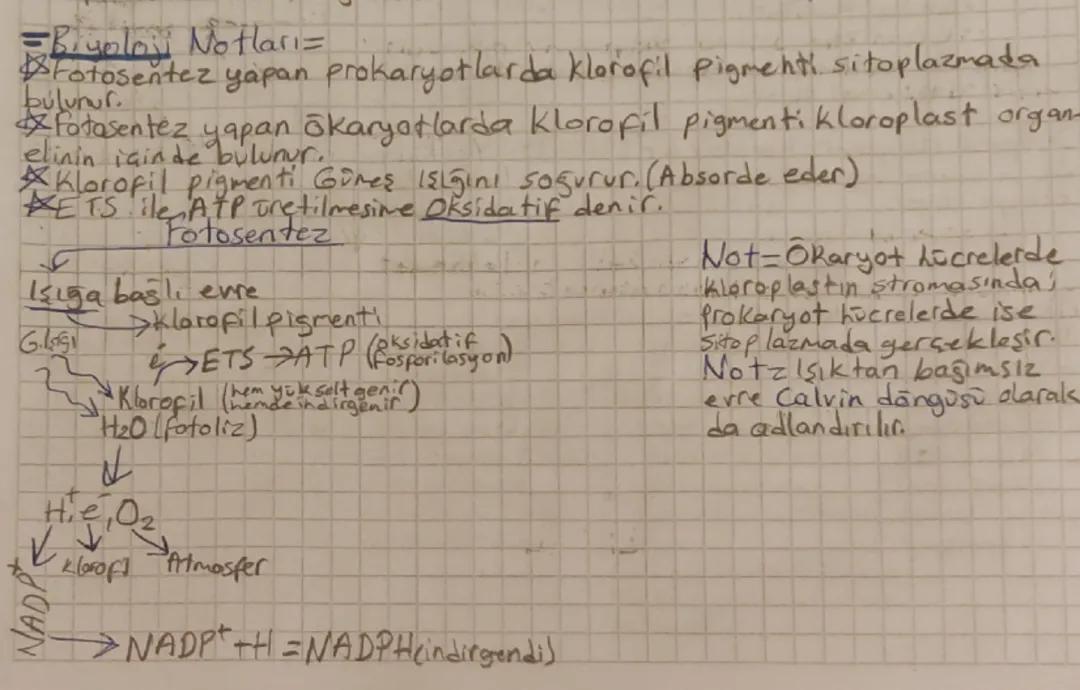 =Biyoloji Notları=
☆Fotosentez yapan prokaryotlarda klorofil pigmenti sitoplazmada
bulunur.
☆Fotosentez yapan ökaryotlarda klorofil pigmenti kloroplast organ-
elinin içinde bulunur.
☆Klorofil pigmenti Güneş ışığını soğurur.(Absorde eder)
☆ETS ile ATP üretilmesine Oksidatif denir.
Fotosentez
Işığa bağlı evre
→Klorofil pigmenti
G.Işığı
é→ETS→ATP (oksidatif
fosforilasyon)
Klorofil (hem yükseltgenir
hemde indirgenir)
H2O (fotoliz)
H⁺, e⁻, O2
Klorofil Atmosfer
NADP⁺
→NADP⁺+H=NADPH(indirgendi)
Not=Ökaryot hücrelerde
kloroplastın stromasında;
prokaryot hücrelerde ise
sitoplazmada gerçekleşir.
Not= Işıktan bağımsız
evre Calvin döngüsü olarak
da adlandırılır.